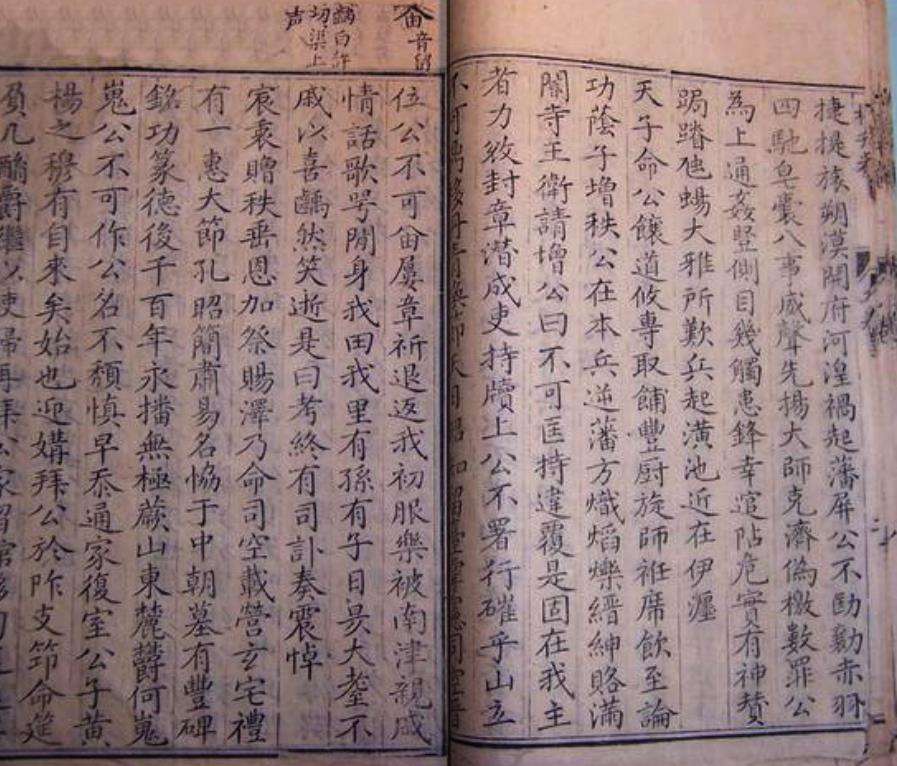 捷提旅朔漠開府河湟禍起藩屏公不勖勷赤羽
四馳皂囊八事威聲先揚大師克濟偽檄數罪公
為上通姦豎側目幾觸患鋒幸逭阽危實有神贊
跼蹐虺蜴大雅所歎兵起潢池近在伊瀍
天子命公饟道攸專取餔豐厨旋師袵席飲至論
功蔭子增秩公在本兵逆藩方熾焰爍縉紳賂滿
闍寺王衛請增公曰不可匡持違覆是固在我主
者力敓封章潜成吏持牘上公不署行確乎山立
不可
位公不可畱屢章祈退返我初服樂被南津親戚
情話歌咢閒身我田我里有孫有子日昃大耋不
戚以喜齲然笑逝是曰考終有司訃奏震悼
宸衷贈秩垂恩加祭賜澤乃命司空載營玄宅禮
有一惠大節孔昭簡肅易名恊于中朝墓有豐碑
銘功篆德後千百年永播無極蕨山東麓欝何嵬
嵬公不可作公名不頽慎早忝通家復室公子黃
楊之穆有自來矣始也迎媾拜公於阼支筇命筵
酳爵
畱音留
白許
切渠上
声